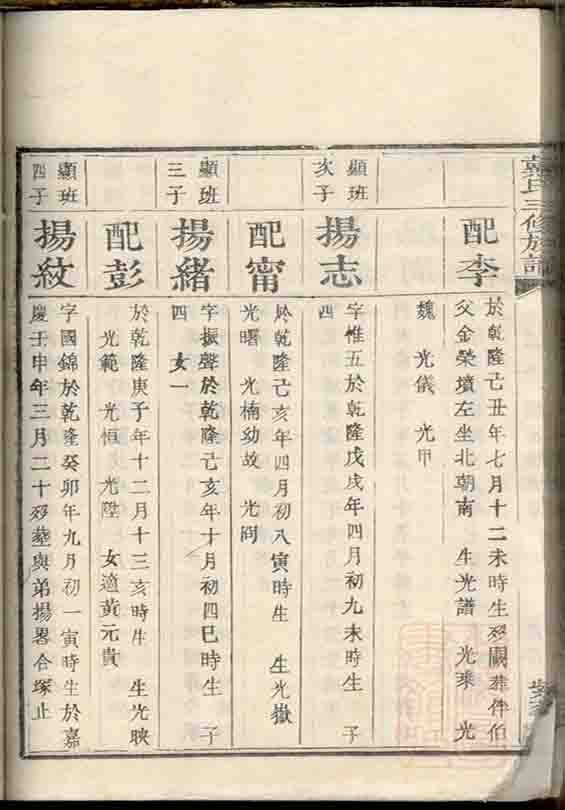 氏三修族譜
配李
於乾隆己丑年七月十二未時生歿闕葬伴伯
父金榮墳左坐北朝南 生光譜 光乘 光
魏 光儀 光甲
顯班
次子
揚志
字惟五於乾隆戊戌年四月初九未時生 子
四
配甯
於乾隆己亥年四月初八寅時生 生光嶽
光曙 光楠幼故 光問
顯班
三子
揚緒
字振聲於乾隆己亥年十月初四巳時生 子
四 女一
配彭
於乾隆庚子年十二月十三亥時生 生光映
光範 光恒 光陞 女適黃元貴
顯班
四子
揚紋
字國錦於乾隆癸卯年九月初一寅時生於嘉
慶壬申年三月二十歿塟與弟揚畧合塚止